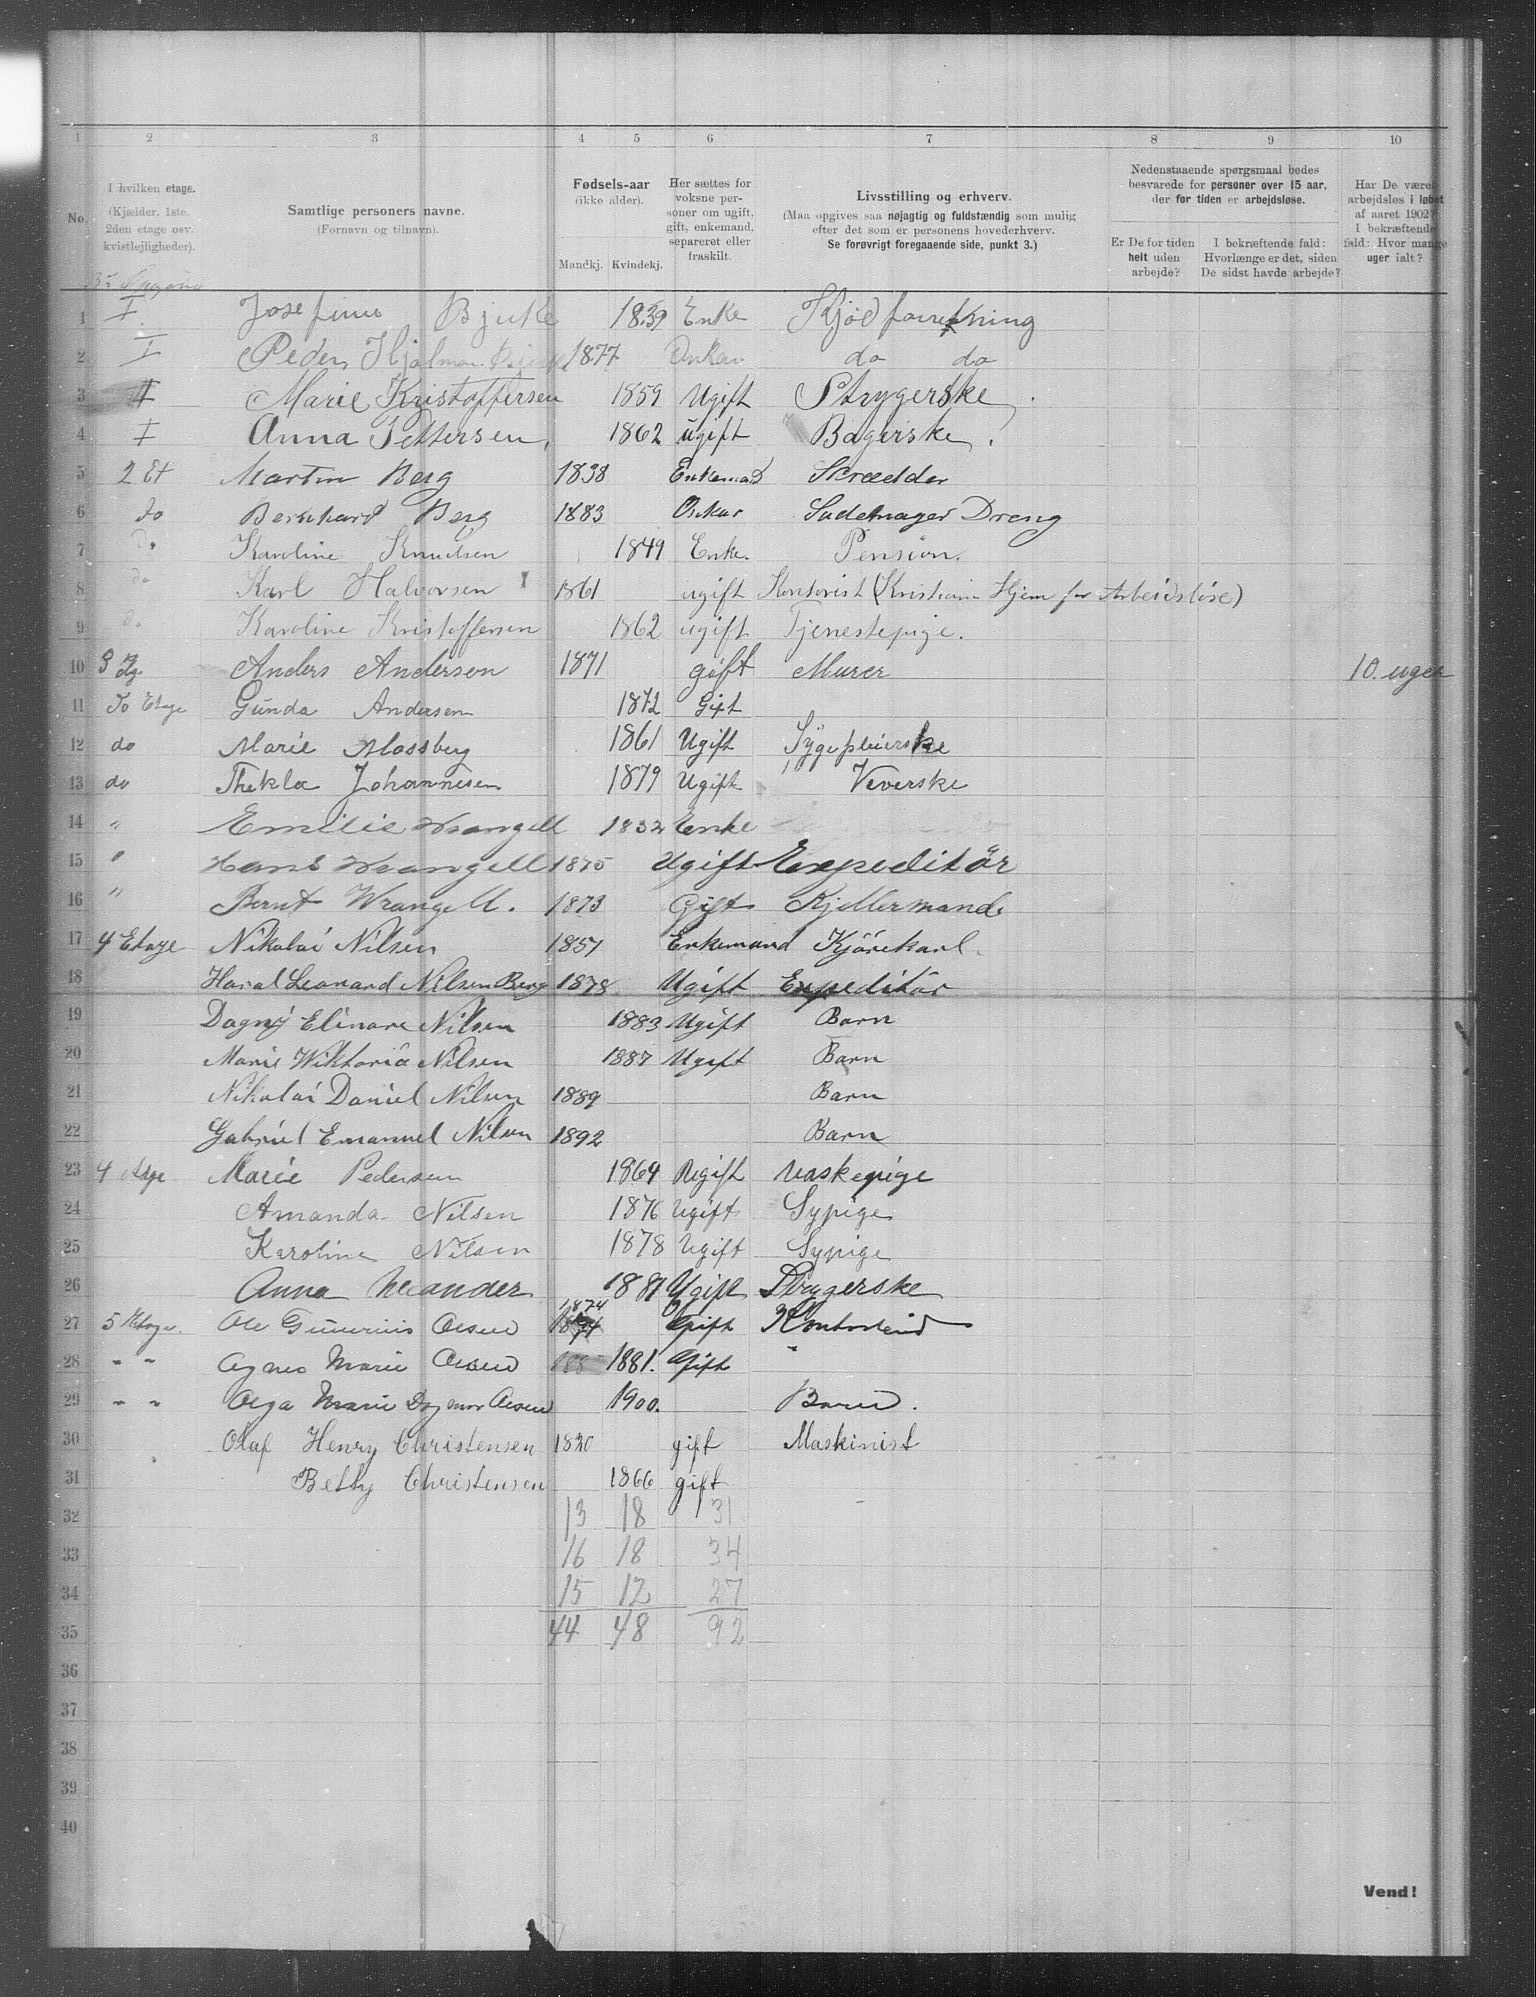 1 2 3 4 5 6 7 8 9 10
No.
I hvilken etage.
(Kjælder, 1ste.
2den etage osv.
kvistlejligheder).
Samtlige personers navne.
(Fornavn og tilnavn).
Fødsels-aar
(ikke alder).
Mandkj. Kvindekj.
Her sættes for
voksne per-
soner om ugift,
gift, enkemand,
separeret eller
fraskilt.
Livsstilling og erhverv.
(Maa opgives saa nøjagtig og fuldstændig som mulig
efter det som er personens hovederhverv.
Se forøvrigt foregaaende side, punkt 3.)
Nedenstaaende spørgsmaal bedes
besvarede for personer over 15 aar,
der for tiden er arbejdsløse.
Er De for tiden
helt uden
arbejde?
I bekræftende fald:
Hvorlænge er det, siden
De sidst havde arbejde?
Har De været
arbejdsløs i løbet
af aaret 1902?
I bekræftende
fald: Hvor mange
uger ialt?
1 I Josefine Bjerke 1839 Enke Kjød forretning
2 I Peder Hjalmar 1877 do do
3 II Marie Kristoffersen 1859 Ugift Strygerske
4 I Anna Pettersen, 1862 ugift Bagerske.
5 2 Et Martin Berg 1838 Enkemand Skrædder
6 do Bernhard Berg 1883 Sadelmager Dreng
7 Do Karoline Knudsen 1849 Enke. Pension.
8 do Karl Halvorsen 1861 ugift Kontorist (Kristiania Hjem for Arbeidsløse)
9 do Karoline Kristoffersen 1862 ugift Tjenestepige.
10 3 Anders Anderson 1871 gift Murer 10. uger
11 Do Etage Gunda Andersen 1872 Gift
12 do Marie Mossberg 1861 Ugift Sygepleierske
13 do Thekla Johannesen 1879 Ugift Veverske
14 " Emilie Wrangell 1832 Enke
15 " Hans Wrangell 1875 Ugift Expeditör
16 " Bernt Wrangell. 1873 Gift Kjellermand
17 4 Etage Nikolai Nilsen 1857 Enkemand Kjörekarl.
18 Haral Leonard Nilsen Berg 1878 Ugift Expeditör
19 Dagny Elinare Nilsen 1883 Ugift Barn
20 Marie Wiktoria Nilsen 1887 Ugift Barn
21 Nikolai Daniel Nilsen 1889 Barn
22 Gabriel Emanuel Nilsen 1892 Barn
23 4 Marie Pedersen 1864 Ugift Vaskepige
24 Amanda Nilsen 1876 Ugift Sypige
25 Karoline Nilsen 1878 Ugift Sypige
26 Anna Neander 1881 Ugift Strygerske
27 5 Etage Ole Gunerius Olsen 1874 Gift
28 " " Agnes Marie Olsen 1881. Gift "
29 " " Olga Marie Dagmar Olsen 1900. Barn.
30 Olaf Henry Christensen 1820 gift Maskinist
31 Betty Christensen 1866 gift
32 13 18 31
33 16 18 34
34 15 12 27
35 44 48 92
36
37
38
39
40
Vend!